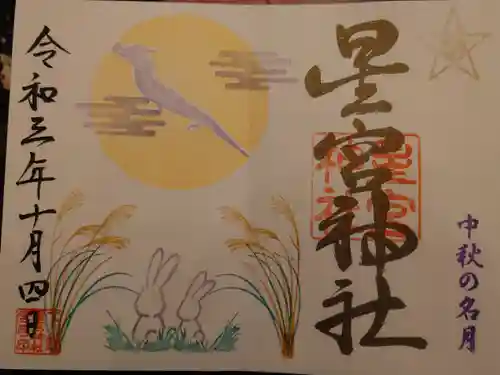 星宮神社
中秋の名月
令和三年十月四日